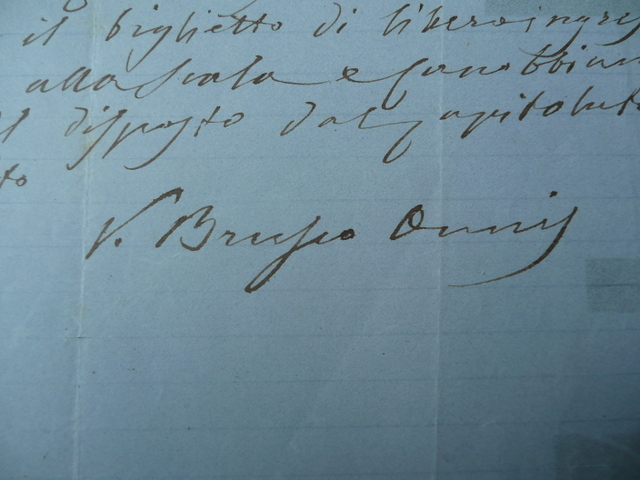 il biglietto di libero ingres
alla Scala e Canobbian
disposto dal Capitolato
to
V. Brusco Onnis